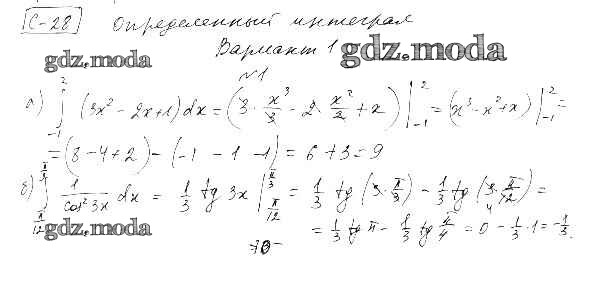 С-28 Определенный интеграл
Вариант 1 gdz.moda
gdz.moda
№1
а) ∫₋₁² (3x² - 2x + 1) dx = (3 · x³/3 - 2 · x²/2 + x) |₋₁² = (x³ - x² + x) |₋₁² =
= (8 - 4 + 2) - (-1 - 1 - 1) = 6 + 3 = 9
б) ∫_{π/12}^{π/3} 1/cos² 3x dx = 1/3 tg 3x |_{π/12}^{π/3} = 1/3 tg (3 · π/3) - 1/3 tg (3 · π/12) =
= 1/3 tg π - 1/3 tg π/4 = 0 - 1/3 · 1 = -1/3.
gdz.moda